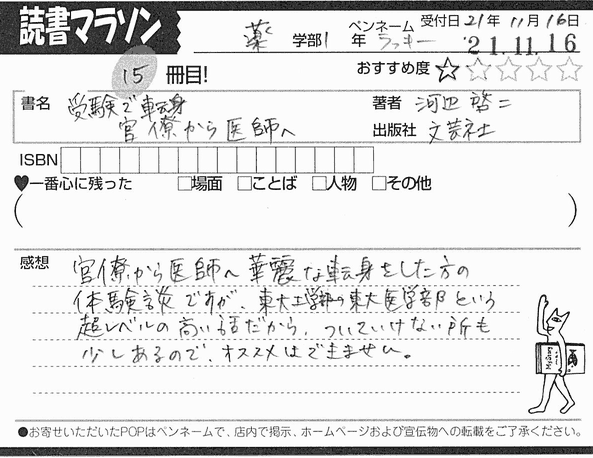 読書マラソン
薬 学部1年
ペンネーム ラッキー
受付日 21年11月16日
'21.11.16
15 冊目!
おすすめ度 ☆☆☆☆☆
書名 受験で転身
官僚から医師へ
著者 河辺啓二
出版社 文芸社
ISBN
♥一番心に残った □場面 □ことば □人物 □その他
( )
感想 官僚から医師へ華麗な転身をした方の
体験談ですが、東大工学部→東大医学部という
超レベルの高い話だから、ついていけない所も
少しあるので、オススメはできません。
●お寄せいただいたPOPはペンネームで、店内で掲示、ホームページおよび宣伝物への転載をご了承ください。